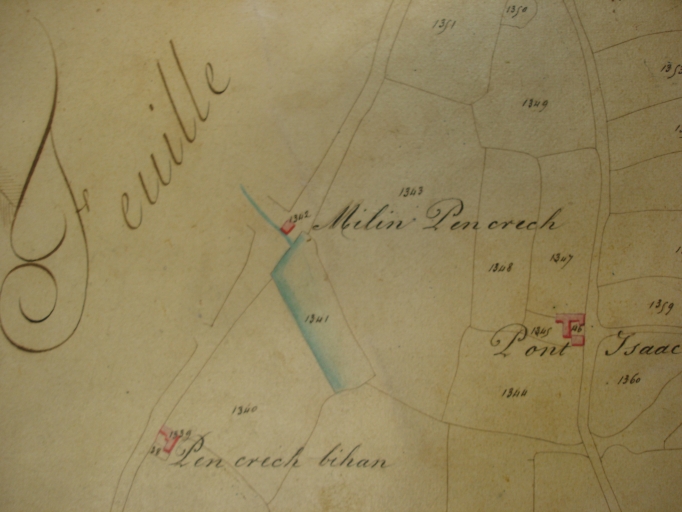 1351
1350
1349
1343
Feuille
1342
Milin Pencrech
1348
1347
1341
1359
1345
46
Pont Isaac
1360
1344
1340
1339
38
Pen crech bihan